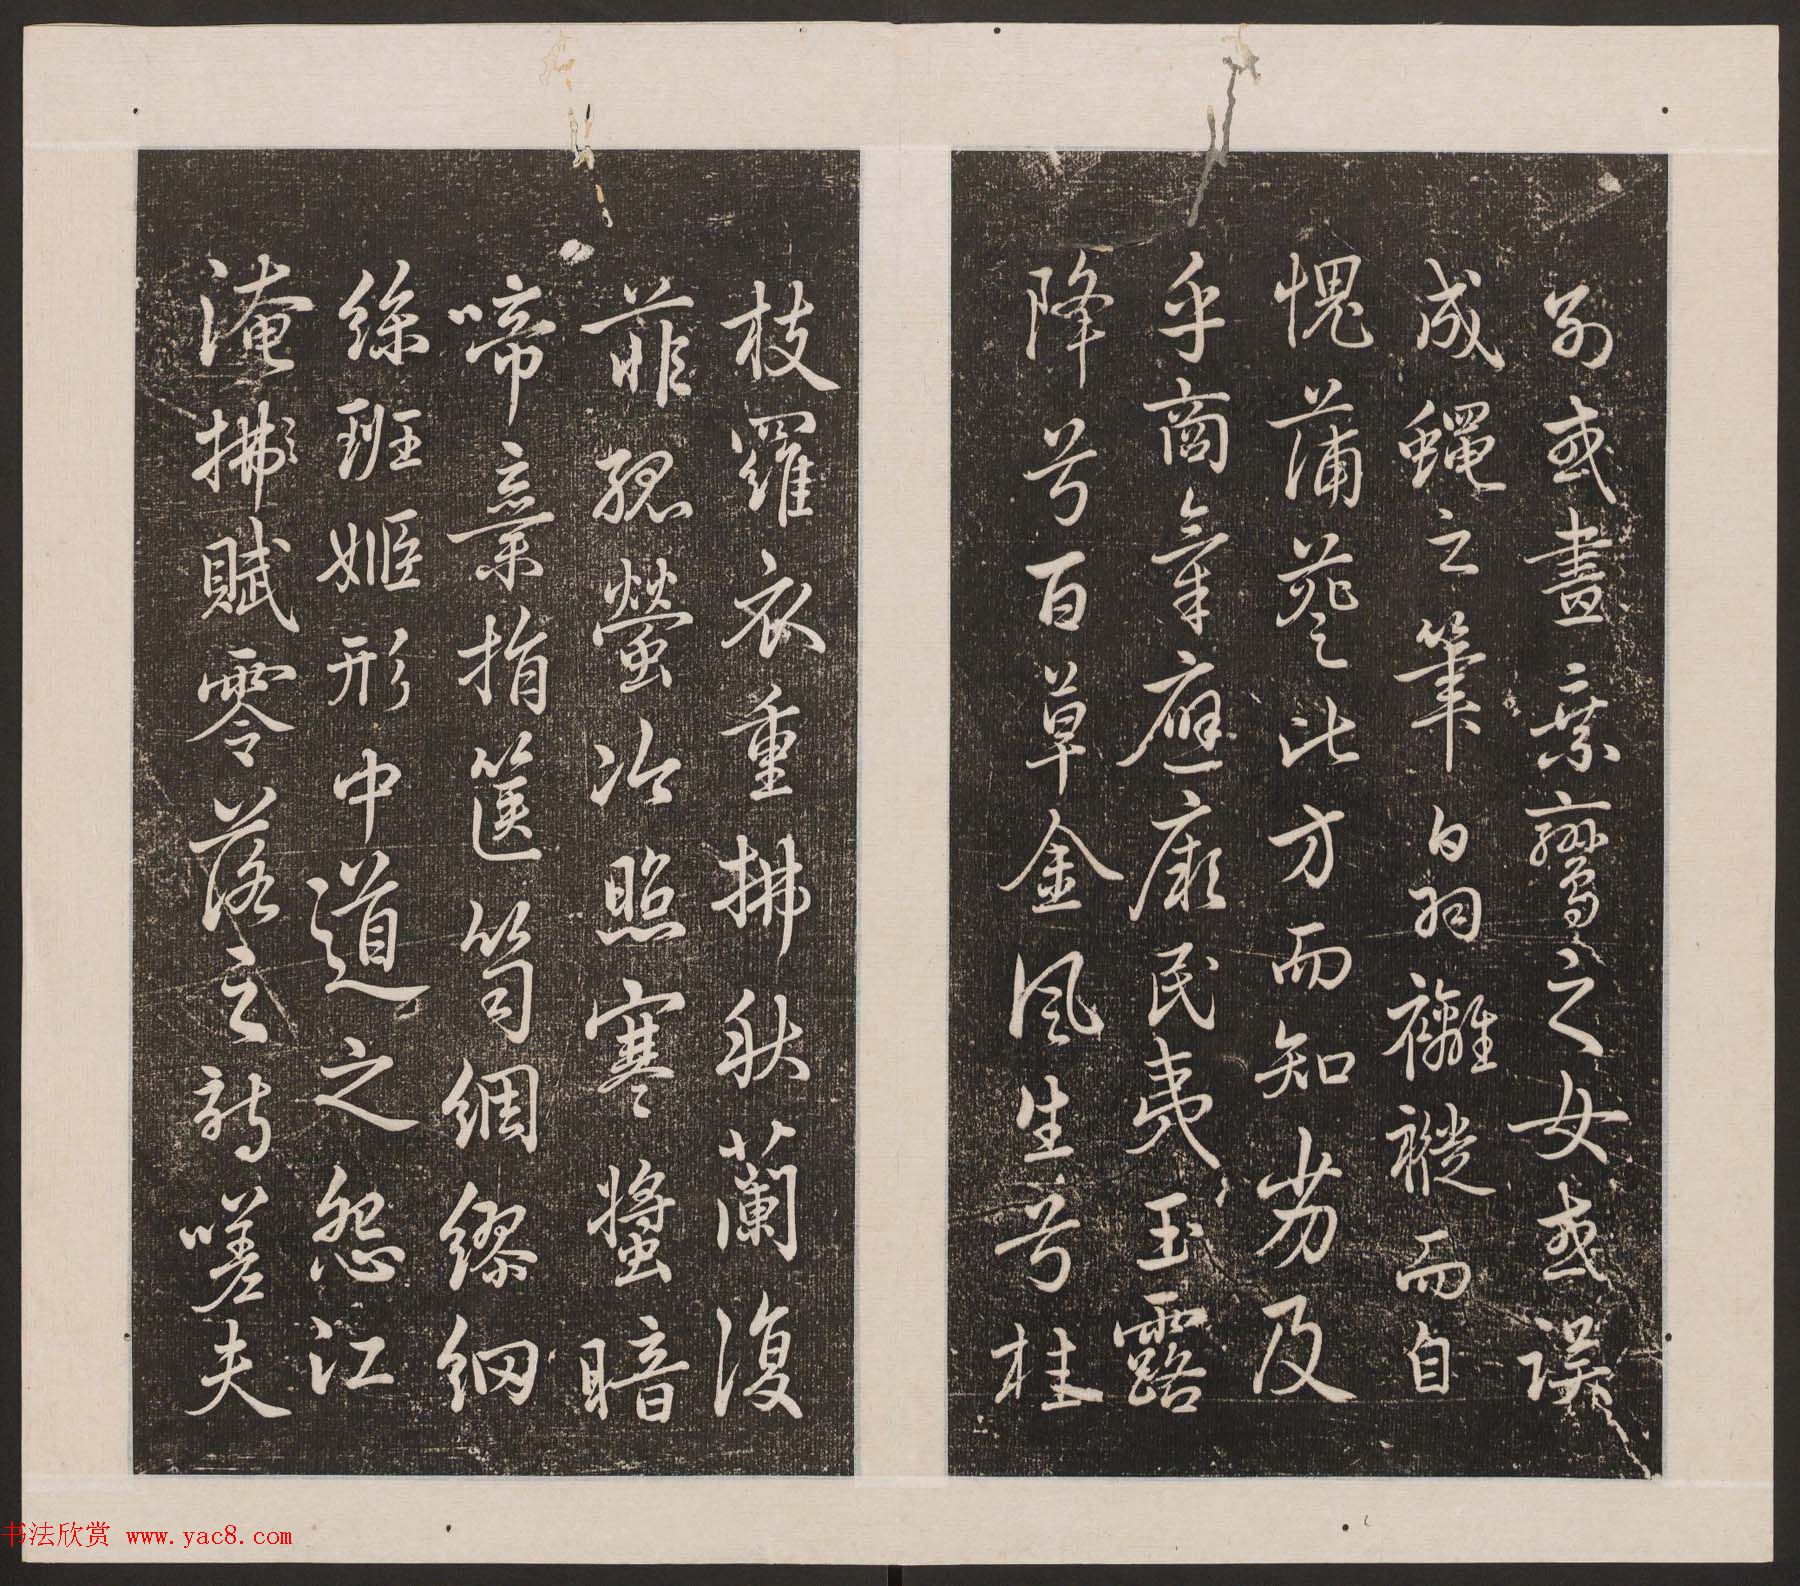 別或畫乘鸞之女或誤
成蠅之筆白羽襹褷而自
愧蒲葵比方而知劣及
乎商氣應厥民夷玉露
降兮百草金風生兮桂
枝羅衣重拂秋蘭復
菲孤螢冷照寒螿暗
啼棄捐篋笥綢繆網
絲班姬形中道之怨江
淹拂賦零落之詩嗟夫
书法欣赏 www.yac8.com